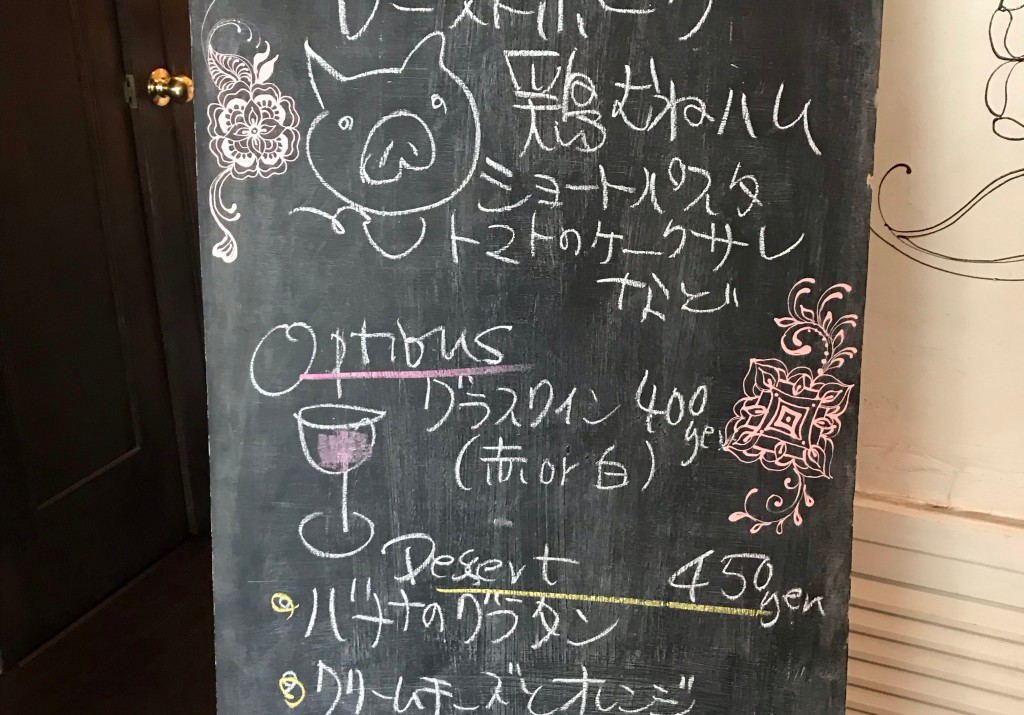 ローストポーク
鶏むねハム
ショートパスタ
トマトのケークサレ
など
Options
グラスワイン 400yen
(赤or白)
Dessert 450yen
バナナのグラタン
クリームチーズとオレンジ